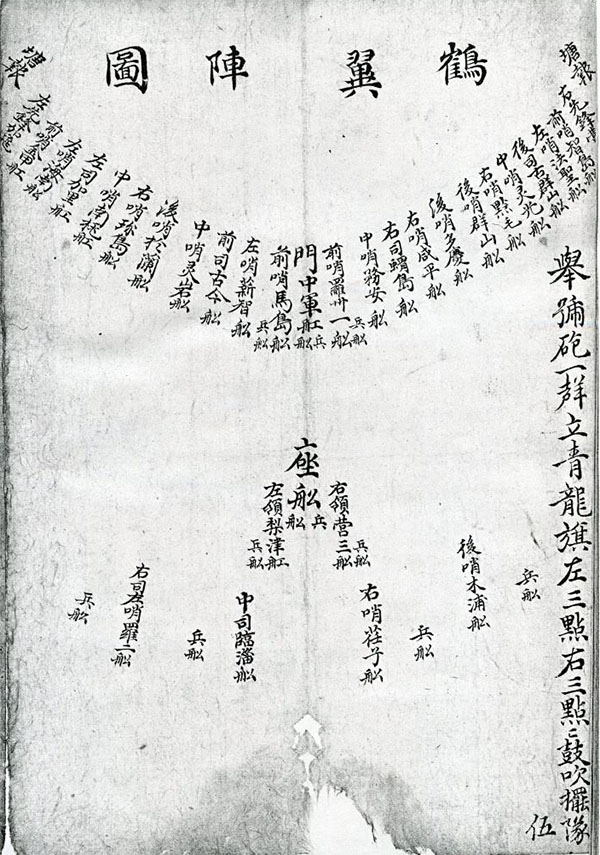 鶴翼陣圖
擧號砲一聲立青龍旗左三點右三點〻鼓吹擺隊伍
塘報
前哨智島船
左哨法聖船
後司古群山船
中哨灵光船
右哨黔毛船
後哨群山船
後哨多慶船
右哨咸平船
右司蝟島船
中哨務安船
兵船
前哨羅州一船
兵船
門中軍舡
兵船
前哨馬島船
兵船
左哨薪智船
前司古今船
中哨灵岩船
後哨於瀾船
右哨珎島船
中哨南桃舡
左司加里舡
左哨海南船
前哨金甲船
塘報
座船
兵船
右領营三船
兵船
左領梨津舡
兵船
兵船
後哨木浦船
兵船
右哨荏子船
中司臨淄船
兵船
右司左哨羅二船
兵船